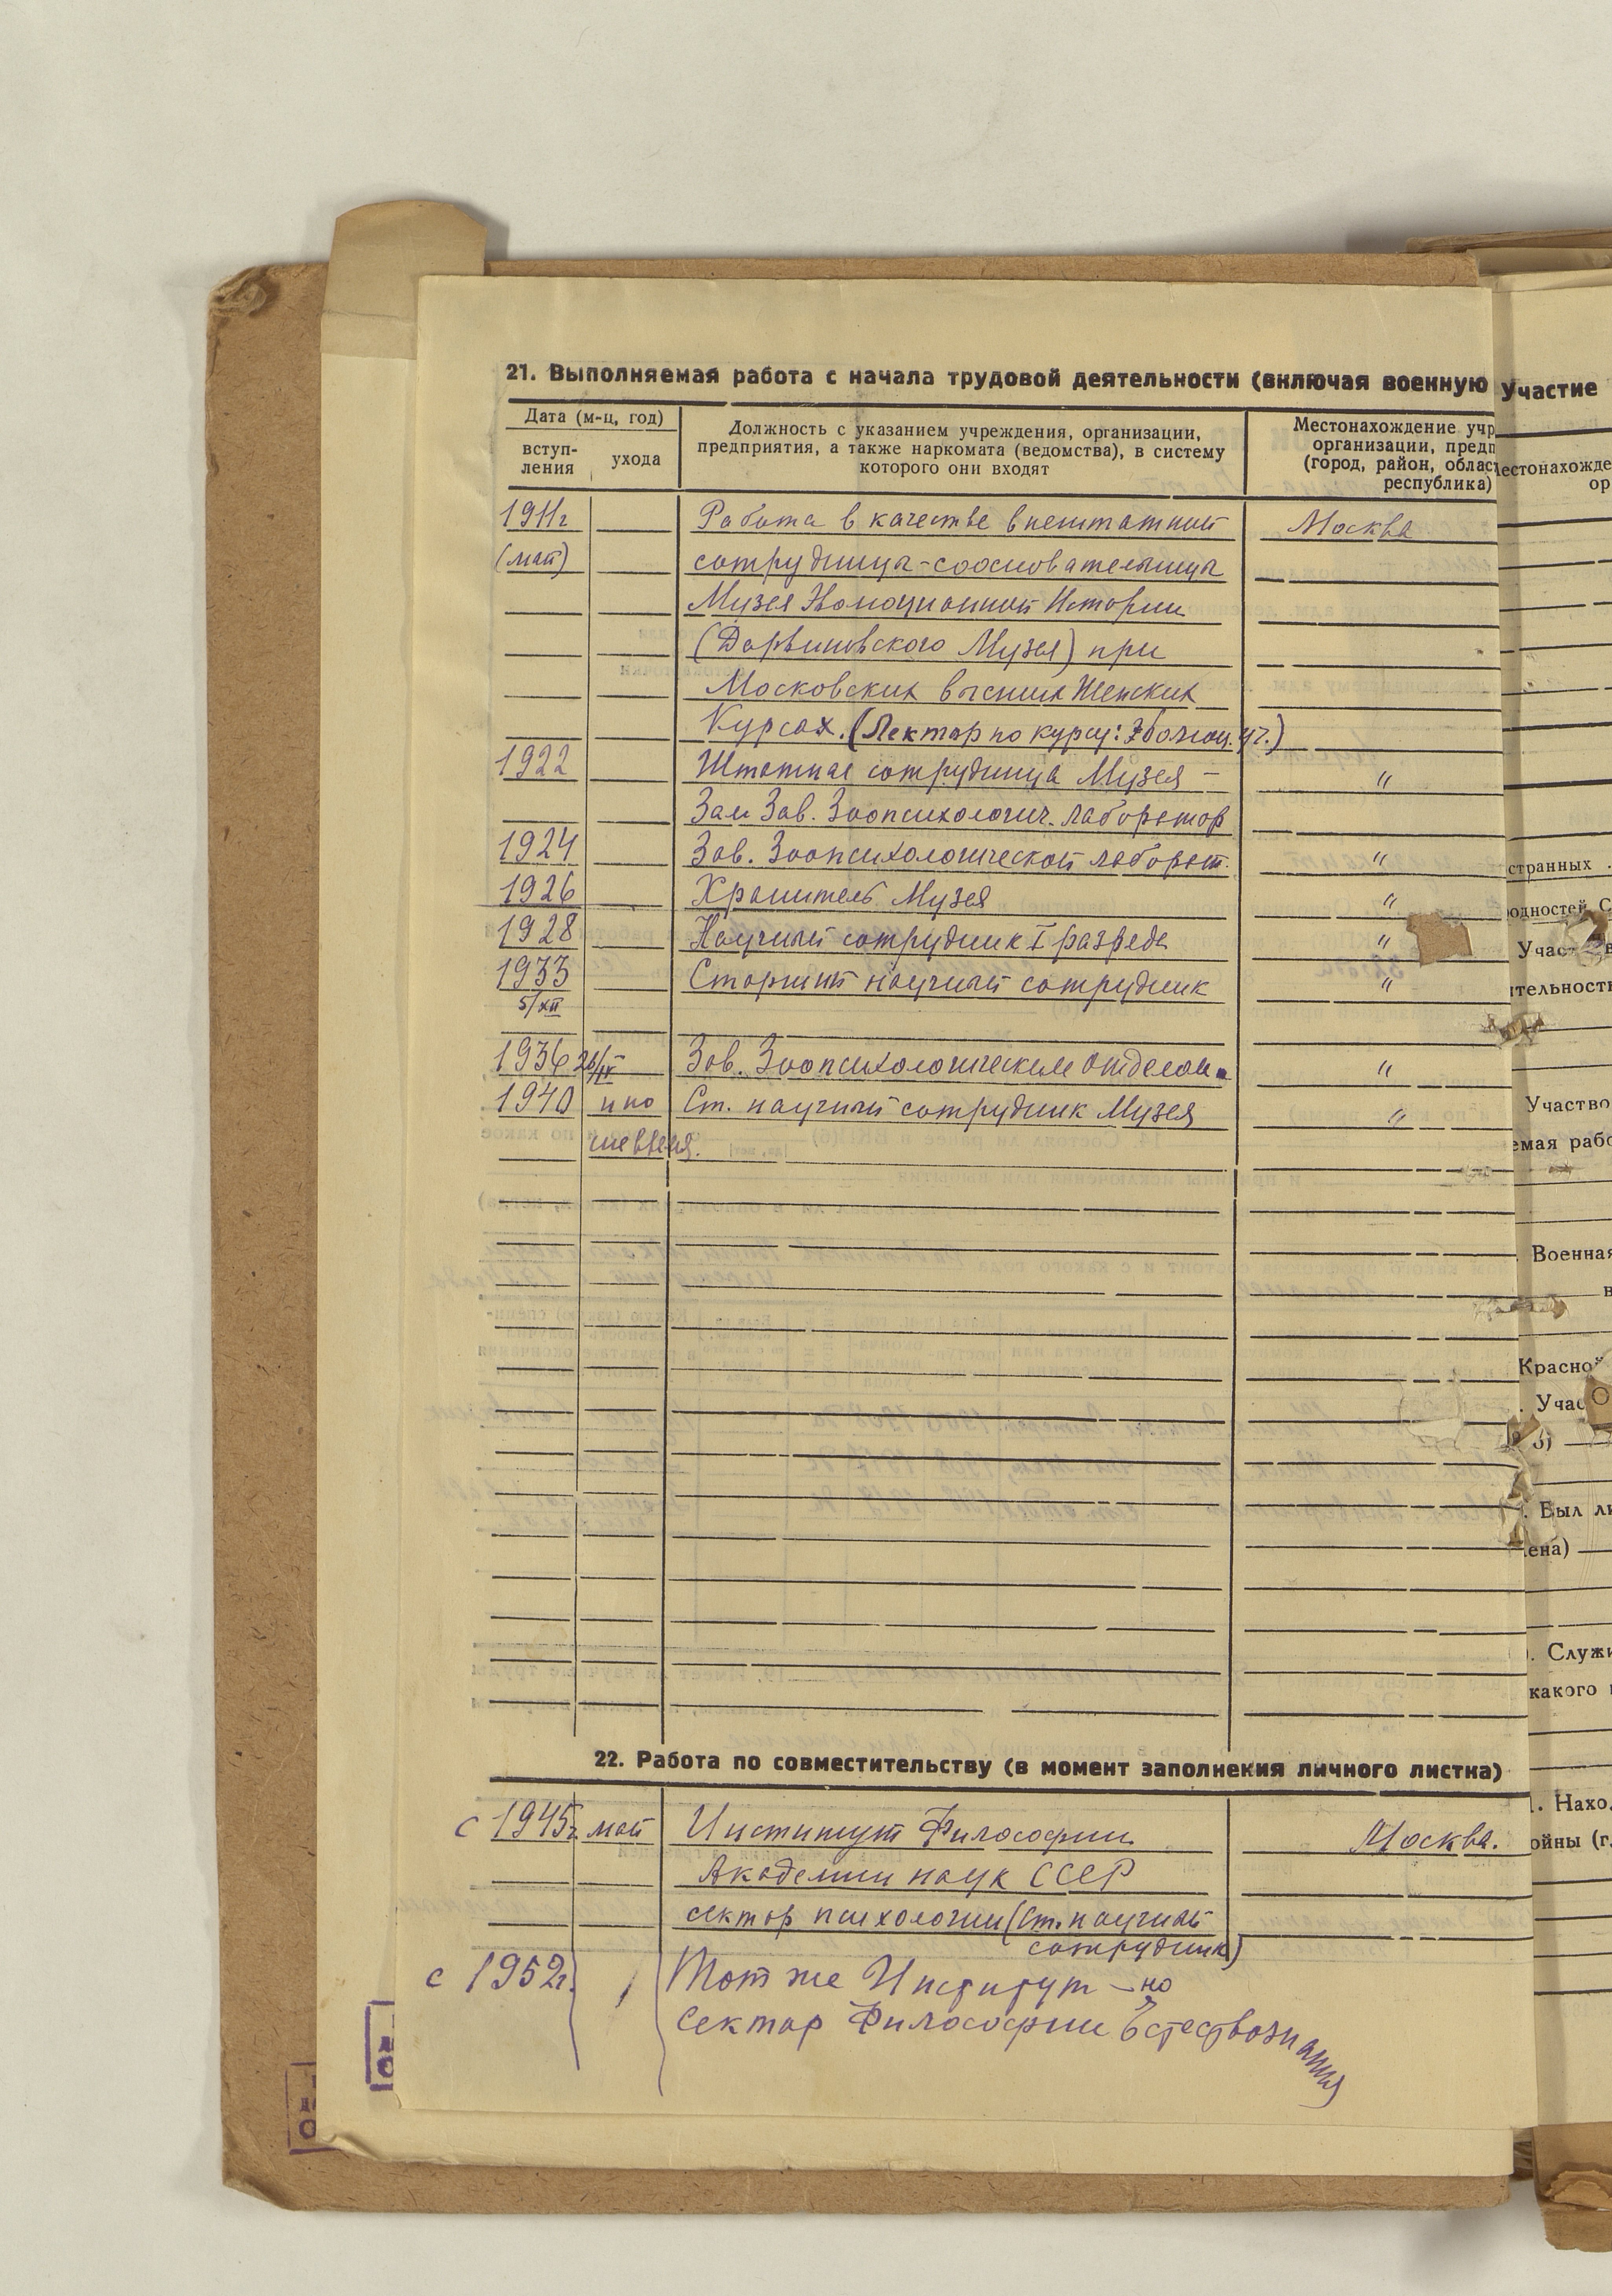 21. Выполняемая работа с начала трудовой деятельности (включая военную
Дата (м-ц, год)
вступ-
ления
ухода
Должность с указанием учреждения, организации,
предприятия, а также наркомата (ведомства), в систему
которого они входят
Местонахождение учр
организации, предп
(город, район, облас
республика)
1911г Работа в качестве внештатной Москва
(май) сотрудницы-соосновательницы
Музея Эволюционной Истории
(Дарвиновского Музея) при
Московских высших Женских
Курсах. (Лектор по курсу: Эволюц. уч.)
1922 Штатная сотрудница Музея — "
Зам Зав. Зоопсихологич. лаборатор
1924 Зав. Зоопсихологической лаборат. "
1926 Хранитель Музея "
1928 Научный сотрудник I разряда "
1933 Старший научный сотрудник "
5/XII
1936 26/IV Зав. Зоопсихологическим отделом "
1940 и по Ст. научный сотрудник Музея "
сие время.
22. Работа по совместительству (в момент заполнения личного листка)
с 1945г. май Институт Философии Москва.
Академии наук СССР
сектор психологии (Ст. научный
сотрудник)
с 1952г. Тот же Институт — но
Сектор Философии Естествознания
Участие
Местонахожде
ор
странных
родностей С
Участ
в
ительность
Участво
емая рабо
Военная
в
Красной
Учас
Был ли
ена)
Служи
какого
Нахо
ойны (г